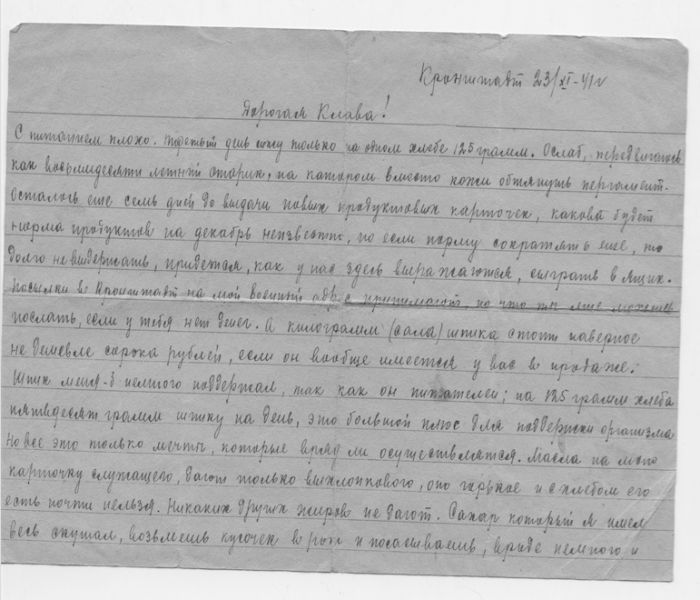 Кронштадт 23/XI-41г
Дорогая Клава!
С питанием плохо. Третый день сижу только на одном хлебе 125 грамм. Ослаб, передвигаюсь
как восьмидесяти летний старик, на катором вместо кожи обтянут пергамент.
Осталось еще семь дней до выдачи новых продуктовых карточек, какова будет
норма продуктов на декабрь неизвестно, но если норму сократять еще, то
долго не выдержать, придется, как у нас здесь выражаются, сыграть в ящик.
Посылки в Кронштадт на мой военный адрес принимают, но что ты мне можешь
послать, если у тебя нет денег. А килограмм (сала) шпика стоит наверное
не дешевле сорока рублей, если он вообще имеется у вас в продаже.
Шпик меня-б немного поддержал, так как он питателен; на 125 грамм хлеба
пятьдесят грамм шпику на день, это большой плюс для поддержки организма
Но все это только мечты, которые вряд ли осуществлятся. Масла на мою
карточку служащего, дают только выхлопкового, оно горькое и с хлебом его
есть почти нельзя. Никаких других жиров не дают. Сахар который я имел
весь скушал, возьмешь кусочек в рот и пососаешь, вроде немного и